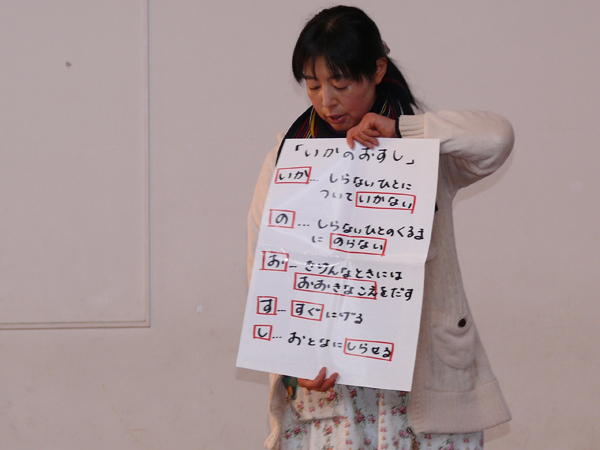 「いかのおすし」
いか… しらないひとに
ついていかない
の … しらないひとのくるま
に のらない
お… きけんなときには
おおきなこえをだす
す… すぐにげる
し… おとなにしらせる